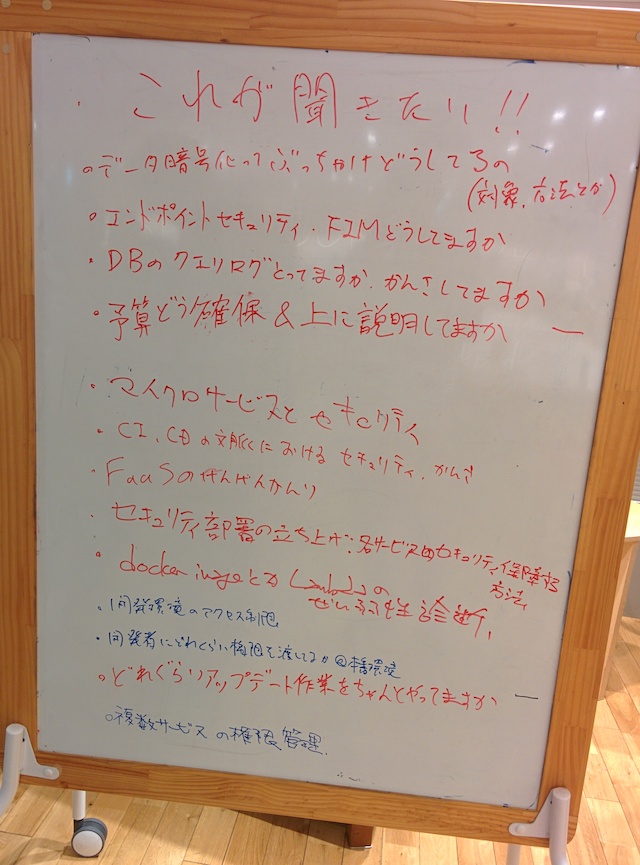 ・これが聞きたい!!
。データ暗号化ってぶっちゃけどうしてるの
(対象、方法とか)
・エンドポイントセキュリティ・FIMどうしてますか
・DBのクエリログとってますか、かんさしてますか
・予算どう確保&上に説明してますか ー
・マイクロサービスとセキュリティ
・CI、CDの文脈における セキュリティ、かんさ
・FaaSのけんげんかんり
・セキュリティ部署の立ち上げ、各サービスのセキュリティ保障する
方法、
・docker imageとかLambdaの
ぜい弱性診断、
・開発環境のアクセス制限
・開発者にどれくらい権限を渡してるか@本番環境
。どれぐらいアップデート作業をちゃんとやってますか ー
。複数サービスの権限管理、